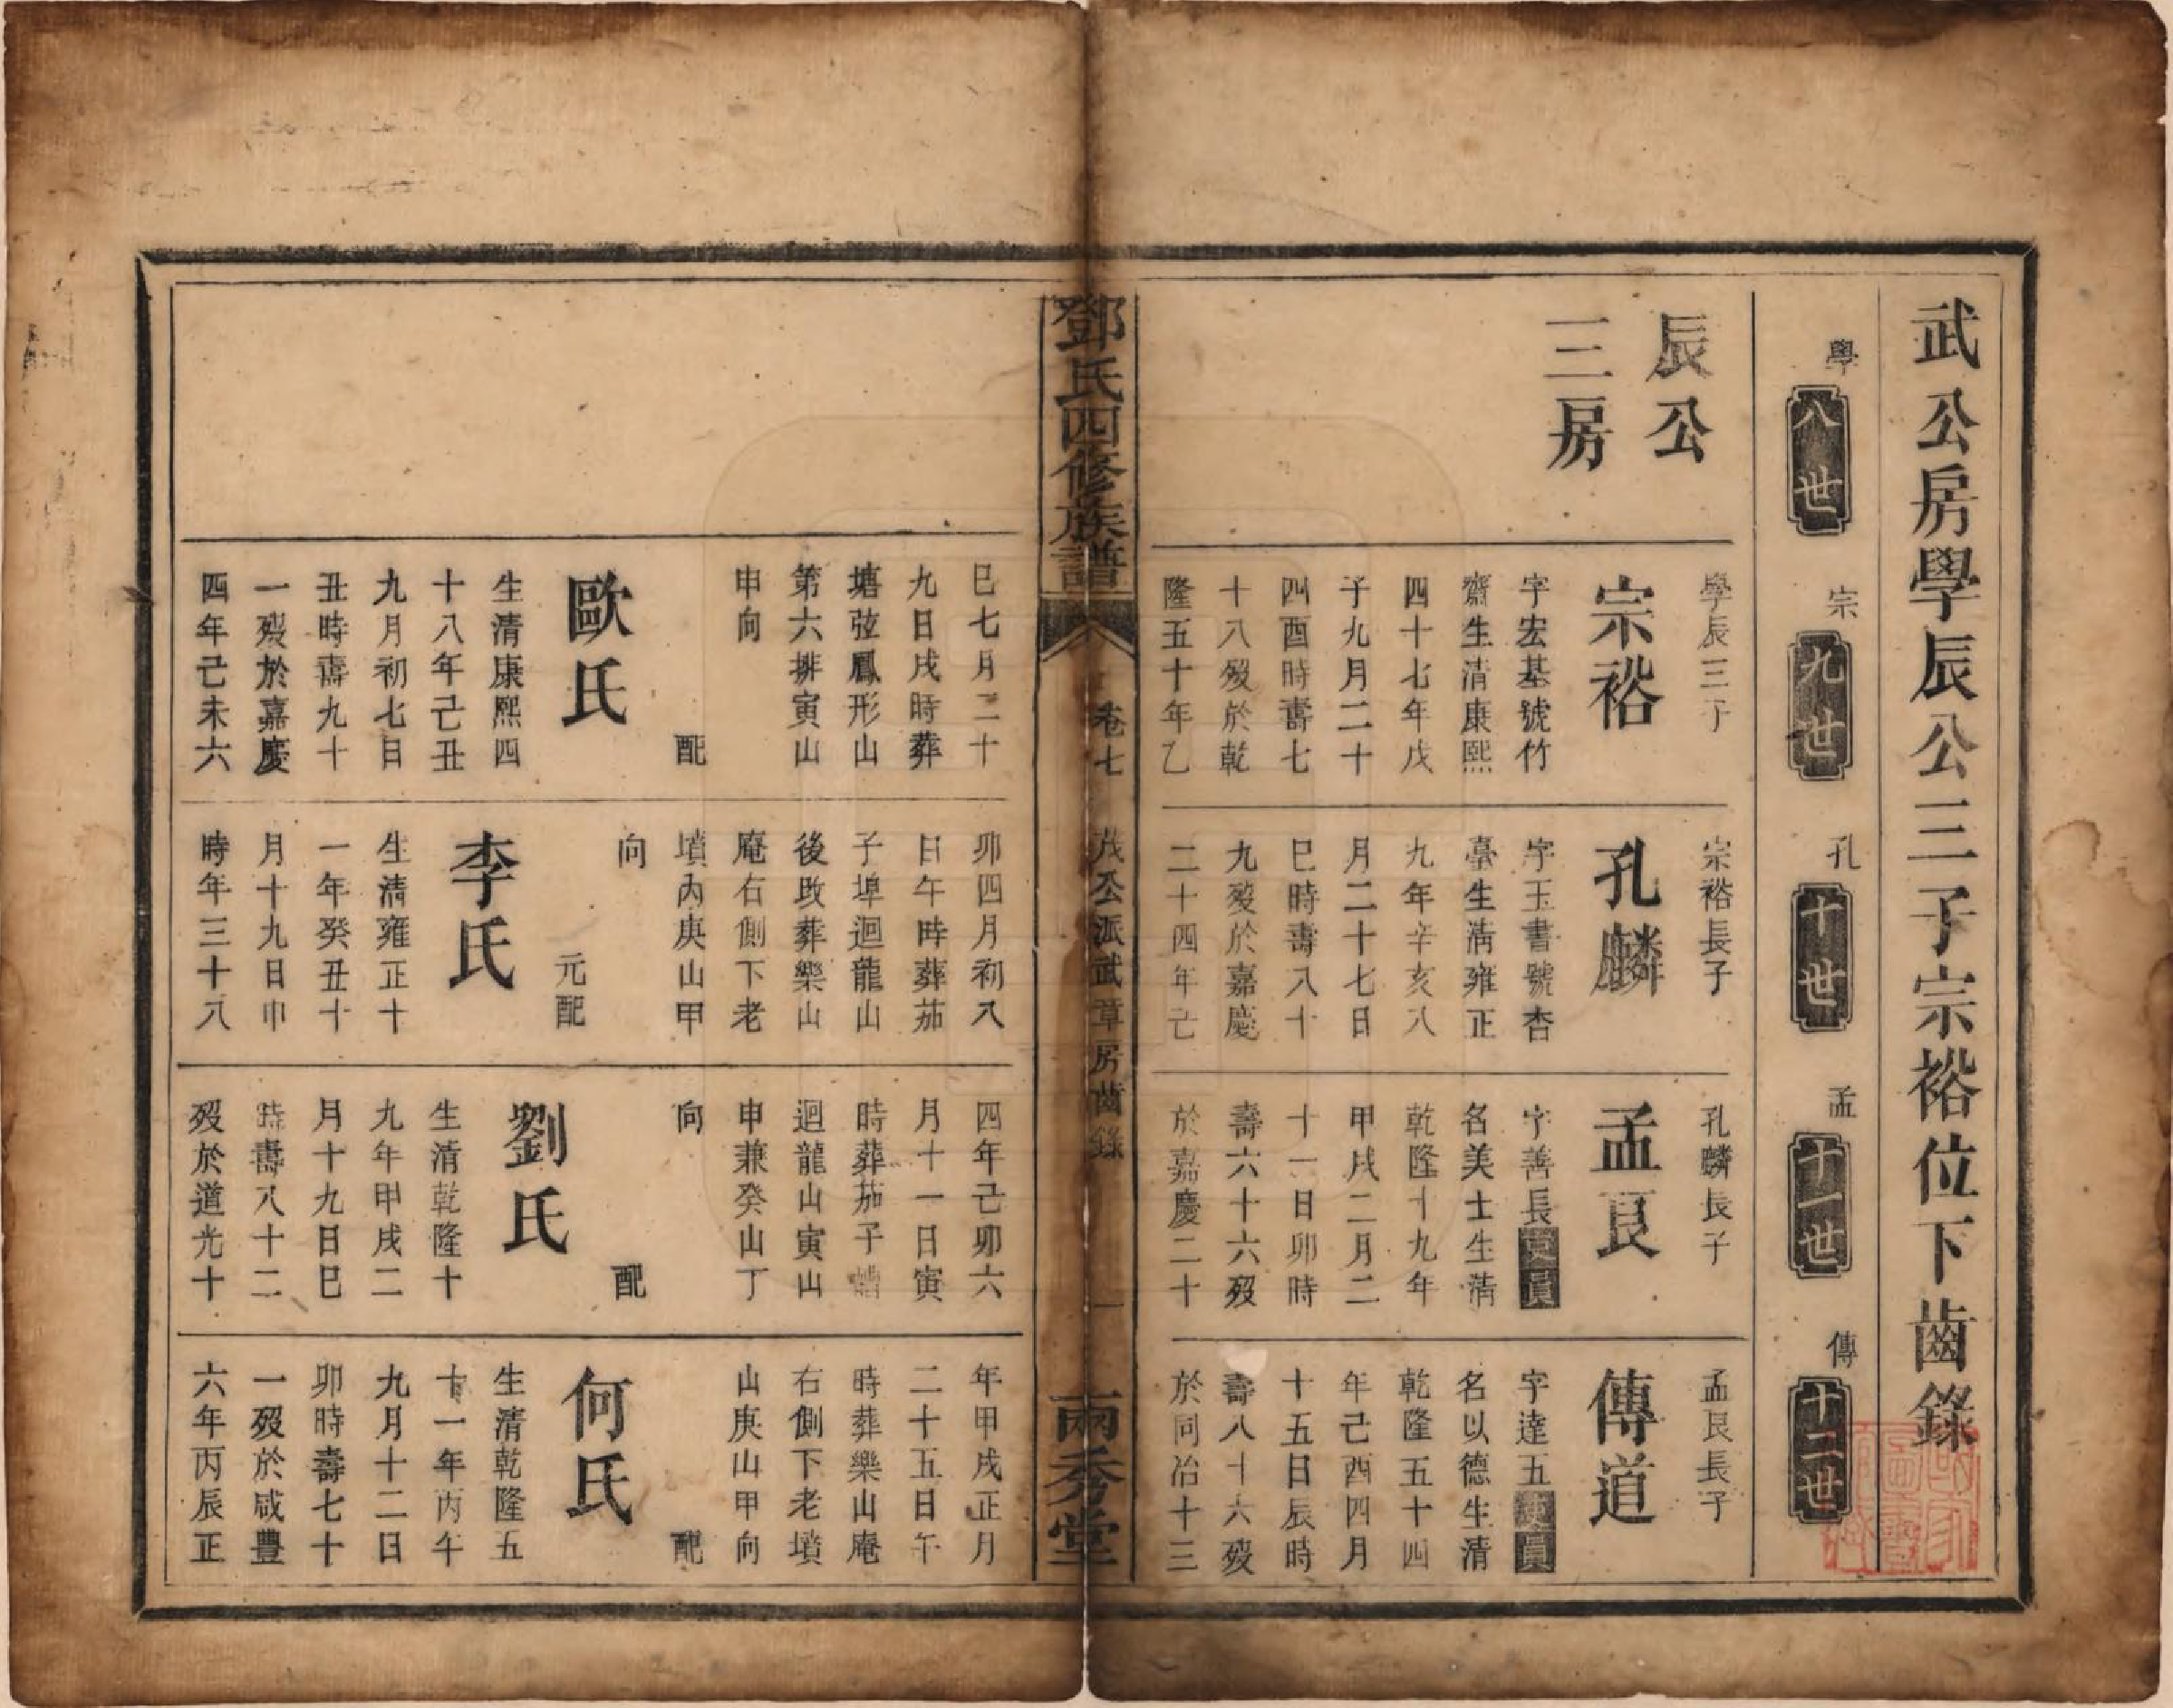 武公房學辰公三子宗裕位下齒錄
學
八世
宗
九世
孔
十世
孟
十一世
傳
十二世
辰公
三房
學辰三子
宗裕
字宏基號竹
齋生清康熙
四十七年戊
子九月二十
四酉時壽七
十八歿於乾
隆五十年乙
宗裕長子
孔麟
字玉書號杏
臺生清雍正
九年辛亥八
月二十七日
巳時壽八十
九歿於嘉慶
二十四年己
孔麟長子
孟良
字善長貢員
名美士生清
乾隆十九年
甲戌二月二
十一日卯時
壽六十六歿
於嘉慶二十
孟良長子
傳道
字達五貢員
名以德生清
乾隆五十四
年己酉四月
十五日辰時
壽八十六歿
於同治十三
鄧氏四修族譜
卷七
茂公派武章房齒錄
一
兩秀堂
巳七月二十
九日戌時葬
塘弦鳳形山
第六排寅山
申向
配
歐氏
生清康熙四
十八年己丑
九月初七日
丑時壽九十
一歿於嘉慶
四年己未六
卯四月初八
日午時葬茄
子埠迴龍山
後改葬樂山
庵右側下老
墳內庚山甲
向
元配
李氏
生清雍正十
一年癸丑十
月十九日巾
時年三十八
四年己卯六
月十一日寅
時葬茄子
迴龍山寅山
申兼癸山丁
向
配
劉氏
生清乾隆十
九年甲戌二
月十九日巳
時壽八十二
歿於道光十
年甲戌正月
二十五日午
時葬樂山庵
右側下老墳
山庚山甲向
配
何氏
生清乾隆五
十一年丙午
九月十二日
卯時壽七十
一歿於咸豐
六年丙辰正